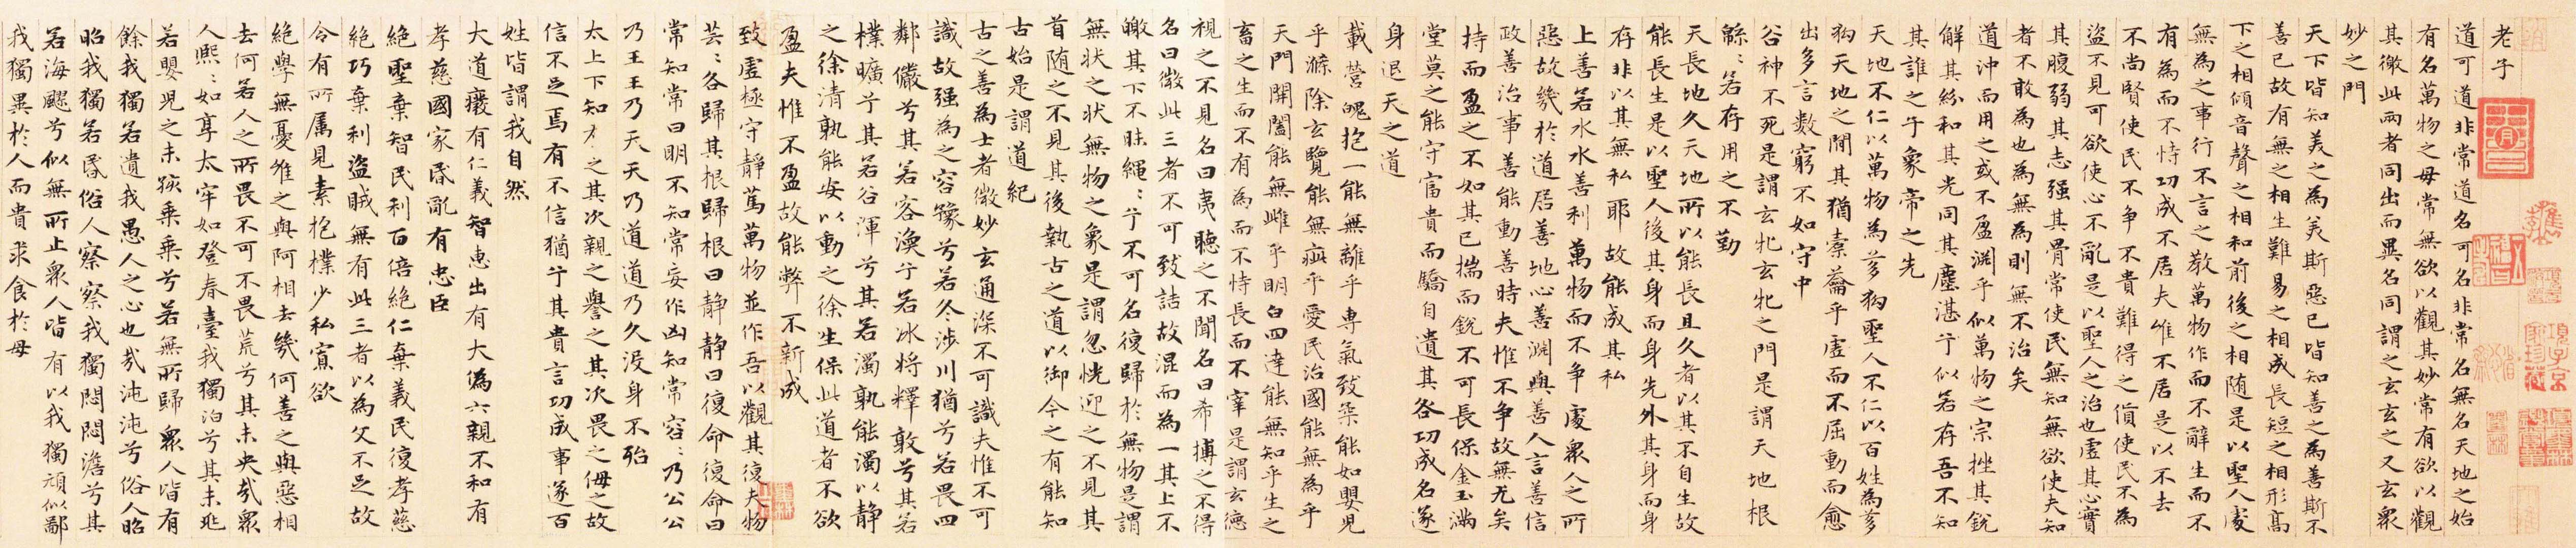 老子
道可道非常道名可名非常名無名天地之始
有名萬物之母常無欲以觀其妙常有欲以觀
其徼此兩者同出而異名同謂之玄玄之又玄衆
妙之門
天下皆知美之為美斯惡已皆知善之為善斯不
善已故有無之相生難易之相成長短之相形高
下之相傾音聲之相和前後之相随是以聖人處
無為之事行不言之教萬物作而不辭生而不
有為而不恃功成不居夫惟不居是以不去
不尚賢使民不争不貴難得之貨使民不為
盜不見可欲使心不亂是以聖人之治也虛其心實
其腹弱其志强其骨常使民無知無欲使夫知
者不敢為也為無為則無不治矣
道沖而用之或不盈渊乎似萬物之宗挫其銳
解其紛和其光同其塵湛乎似若存吾不知
其誰之子象帝之先
天地不仁以萬物為芻狗聖人不仁以百姓為芻
狗天地之間其猶橐籥乎虛而不屈動而愈
出多言數窮不如守中
谷神不死是謂玄牝玄牝之門是謂天地根
緜〻若存用之不勤
天長地久天地所以能長且久者以其不自生故
能長生是以聖人後其身而身先外其身而身
存非以其無私耶故能成其私
上善若水水善利萬物而不争處衆人之所
惡故幾於道居善地心善渊與善人言善信
政善治事善能動善時夫惟不争故無尤矣
持而盈之不如其已揣而銳不可長保金玉滿
堂莫之能守富貴而驕自遺其咎功成名遂
身退天之道
載營魄抱一能無離乎専氣致柔能如嬰兒
乎滌除玄覽能無疵乎愛民治國能無為乎
天門開闔能無雌乎明白四達能無知乎生之
畜之生而不有為而不恃長而不宰是謂玄德
視之不見名曰夷聴之不聞名曰希摶之不得
名曰微此三者不可致詰故混而為一其上不
皦其下不昧繩〻乎不可名復歸於無物是謂
無狀之状無物之象是謂忽恍迎之不見其
首随之不見其後執古之道以御今之有能知
古始是謂道紀
古之善為士者微妙玄通深不可識夫惟不可
識故强為之容豫兮若冬涉川猶兮若畏四
鄰儼兮其若容渙乎若冰将釋敦兮其若
樸曠兮其若谷渾兮其若濁孰能濁以静
之徐清孰能安以動之徐生保此道者不欲
盈夫惟不盈故能弊不新成
致虛極守靜篤萬物並作吾以觀其復夫物
芸〻各歸其根歸根曰静静曰復命復命曰
常知常曰明不知常妄作凶知常容〻乃公公
乃王王乃天天乃道道乃久没身不殆
太上下知有之其次親之譽之其次畏之侮之故
信不足焉有不信猶乎其貴言功成事遂百
姓皆謂我自然
大道廢有仁義智惠出有大偽六親不和有
孝慈國家昏亂有忠臣
絕聖棄智民利百倍絕仁棄義民復孝慈
絕巧棄利盜賊無有此三者以為文不足故
令有所属見素抱樸少私寡欲
絕學無憂唯之與阿相去幾何善之與惡相
去何若人之所畏不可不畏荒兮其未央哉衆
人熙〻如享太牢如登春臺我獨泊兮其未兆
若嬰兒之未孩乘乘兮若無所歸衆人皆有
餘我獨若遺我愚人之心也哉沌沌兮俗人昭
昭我獨若昏俗人察察我獨悶悶澹兮其
若海飂兮似無所止衆人皆有以我獨頑似鄙
我獨異於人而貴求食於母